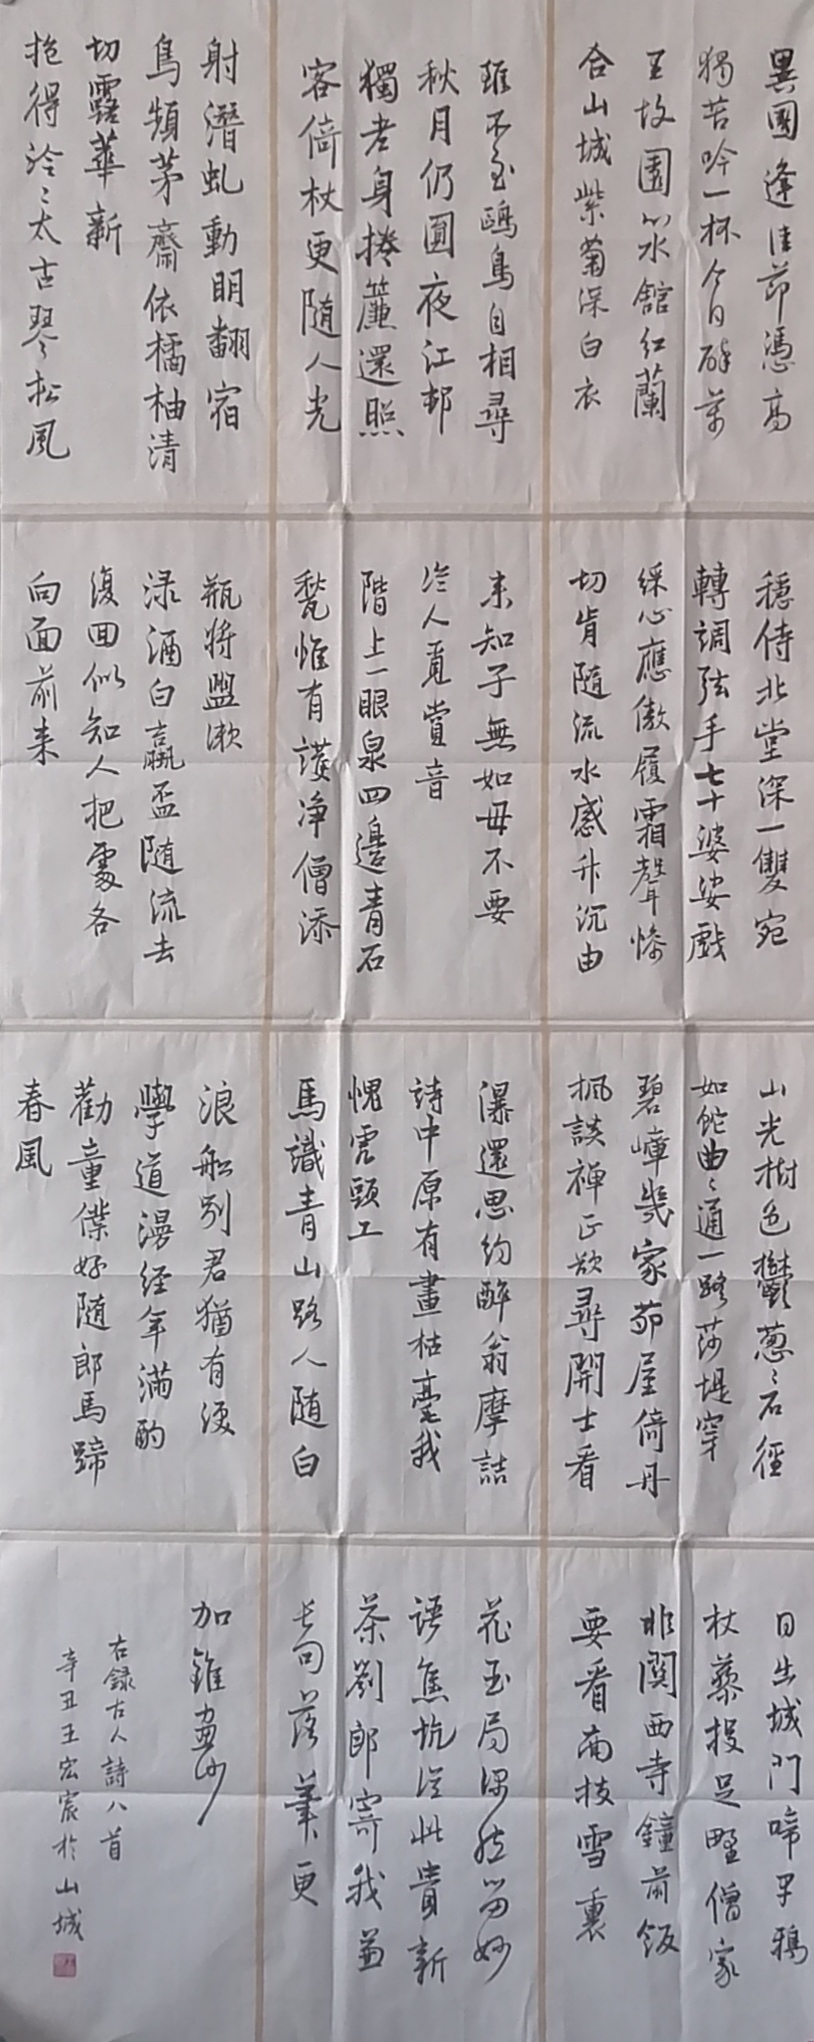 異國逢佳節憑高
獨苦吟一杯今日醉萬
里故園心水館紅蘭
合山城紫菊深白衣
雖不至鷗鳥自相尋
秋月仍圓夜江邨
獨老身捲簾還照
客倚杖更隨人光
射潛虬動明翻宿
鳥頻茅齋依橘柚清
切露華新
抱得泠〻太古琴松風
穩侍北堂深一雙宛
轉調弦手七十婆娑戲
綵心應傲履霜聲慘
切肯隨流水感升沉由
来知子無如毋不要
人覓賞音
階上一眼泉四邊青石
甃惟有護净僧添
瓶將盥漱
渌酒白蠃盃隨流去
復回似知人把處各
向面前来
山光樹色鬱葱〻石徑
如蛇曲〻通一路莎堤穿
碧嶂幾家茆屋倚丹
楓談禪正欲尋開士看
瀑還思約醉翁摩詰
詩中原有畫枯毫我
愧虎頭工
馬識青山路人隨白
浪船别君猶有淚
學道漫經年滿酌
勸童僕好隨郎馬蹄
春風
日出城門啼早鴉
杖藜投足野僧家
非關西寺鐘前飯
要看南枝雪裏
花玉局偶然留妙
語焦坑從此貴新
茶劉郎寄我兼
長句落筆更
加錐畫沙
右録古人詩八首
辛丑王宏宸於山城